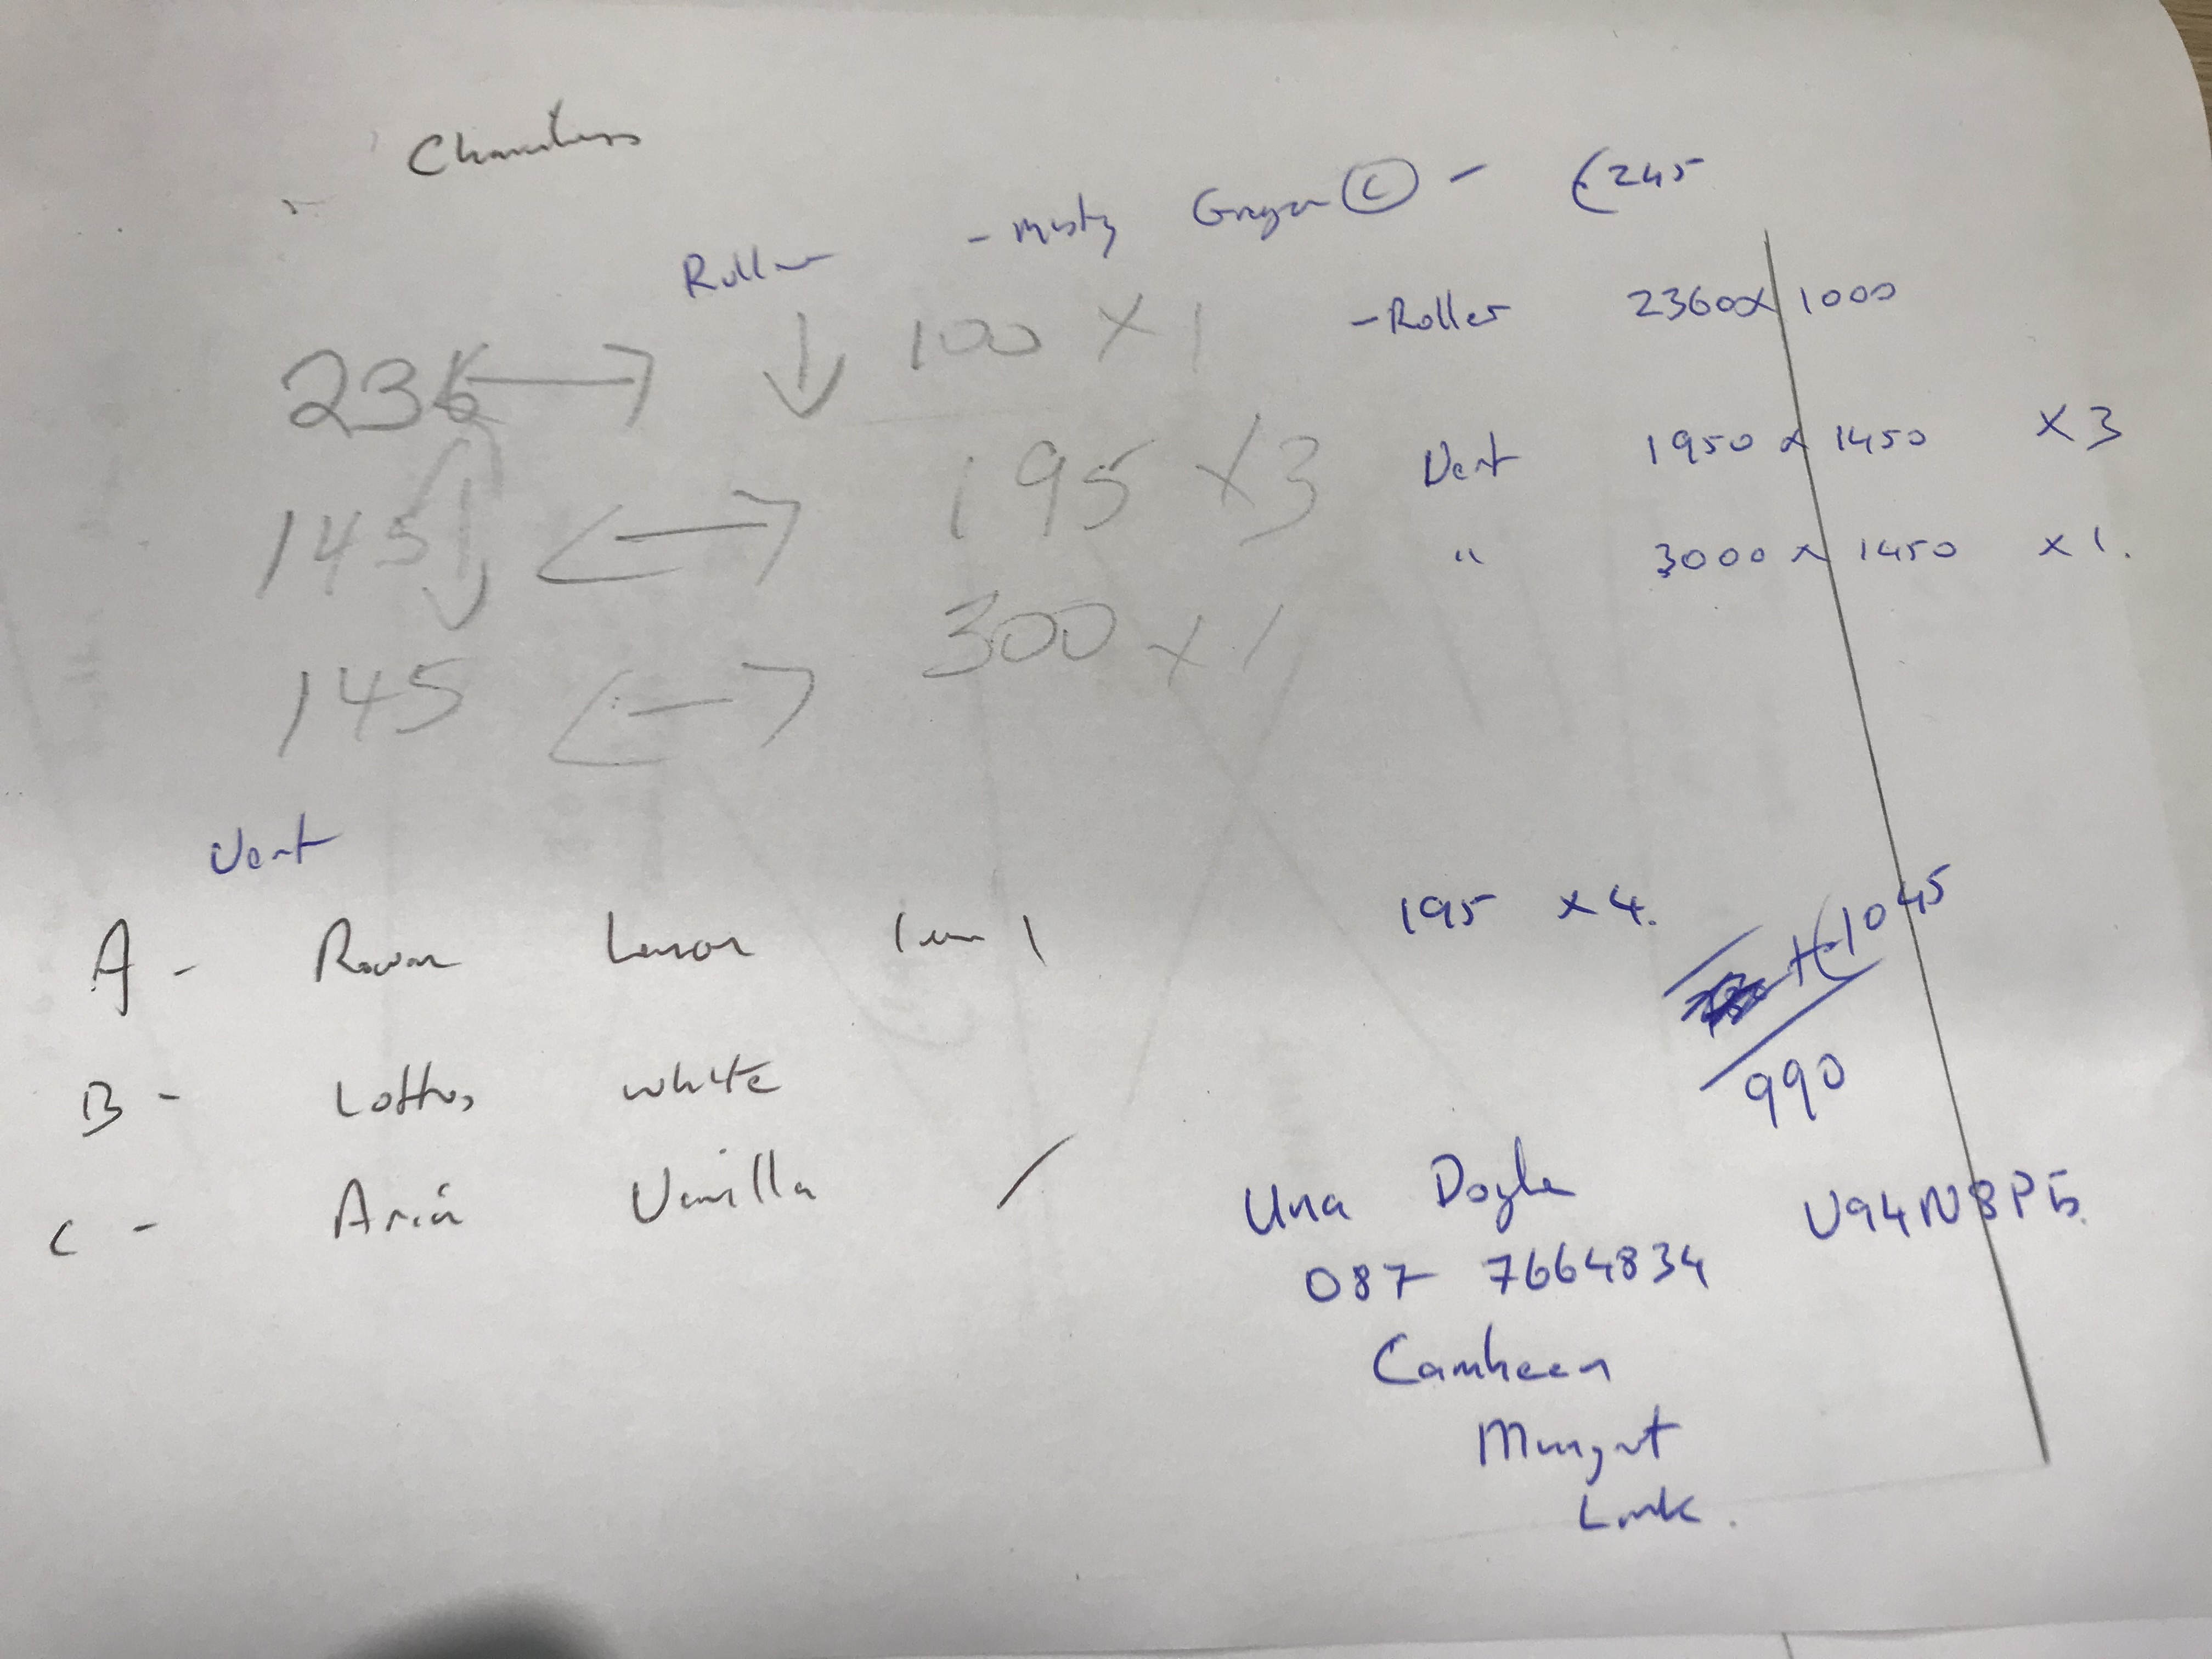 Chambers
Roller - Misty Greyer © - €245
236 ↔ ↓ 100 x 1 - Roller 2360 x 1000
145 ↔ 195 x 3 Vert 1950 x 1450 x 3
145 ↔ 300 x 1 " 3000 x 1450 x 1.
Vert
A - Rowan Lemon 195 x 4. €1045
990
B - Lottus white
C - Aria Vanilla /
Una Doyle V94N8P5.
087 7664834
Camheen
Mungret
Limk.